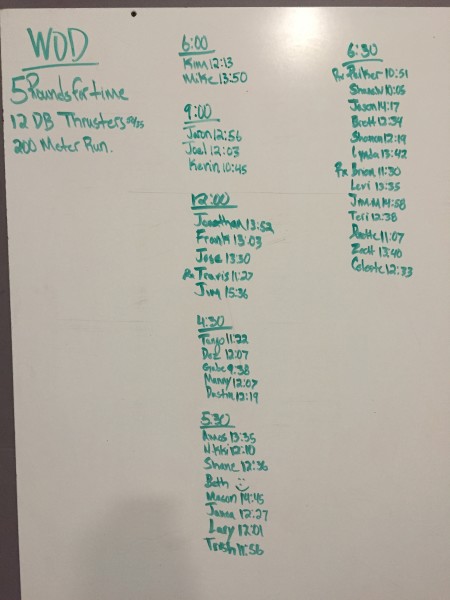 WOD
5 Rounds for time
12 DB Thrusters
200 Meter Run.
6:00
Kim 12:13
Mike 13:50
9:00
Jaron 12:56
Joel 12:03
Kevin 10:45
12:00
Jonathan 13:52
Frank 13:03
Jose 13:30
Rx Travis 11:27
Jim 15:36
4:30
Tango 11:22
Daz 12:07
Gabe 9:38
Manny 12:07
Dustin 12:19
5:30
Amos 13:35
Nikki 12:10
Shane 12:36
Beth
Macon 14:45
12:27
Lacy 12:01
Trish 11:56
6:30
Rx Parker 10:51
10:05
Jason 14:17
Brett 12:34
Shannon 12:19
Lynda 13:42
Rx Brian 11:30
Levi 13:35
14:58
Teri 12:38
11:07
Zach 13:40
Celeste 12:33